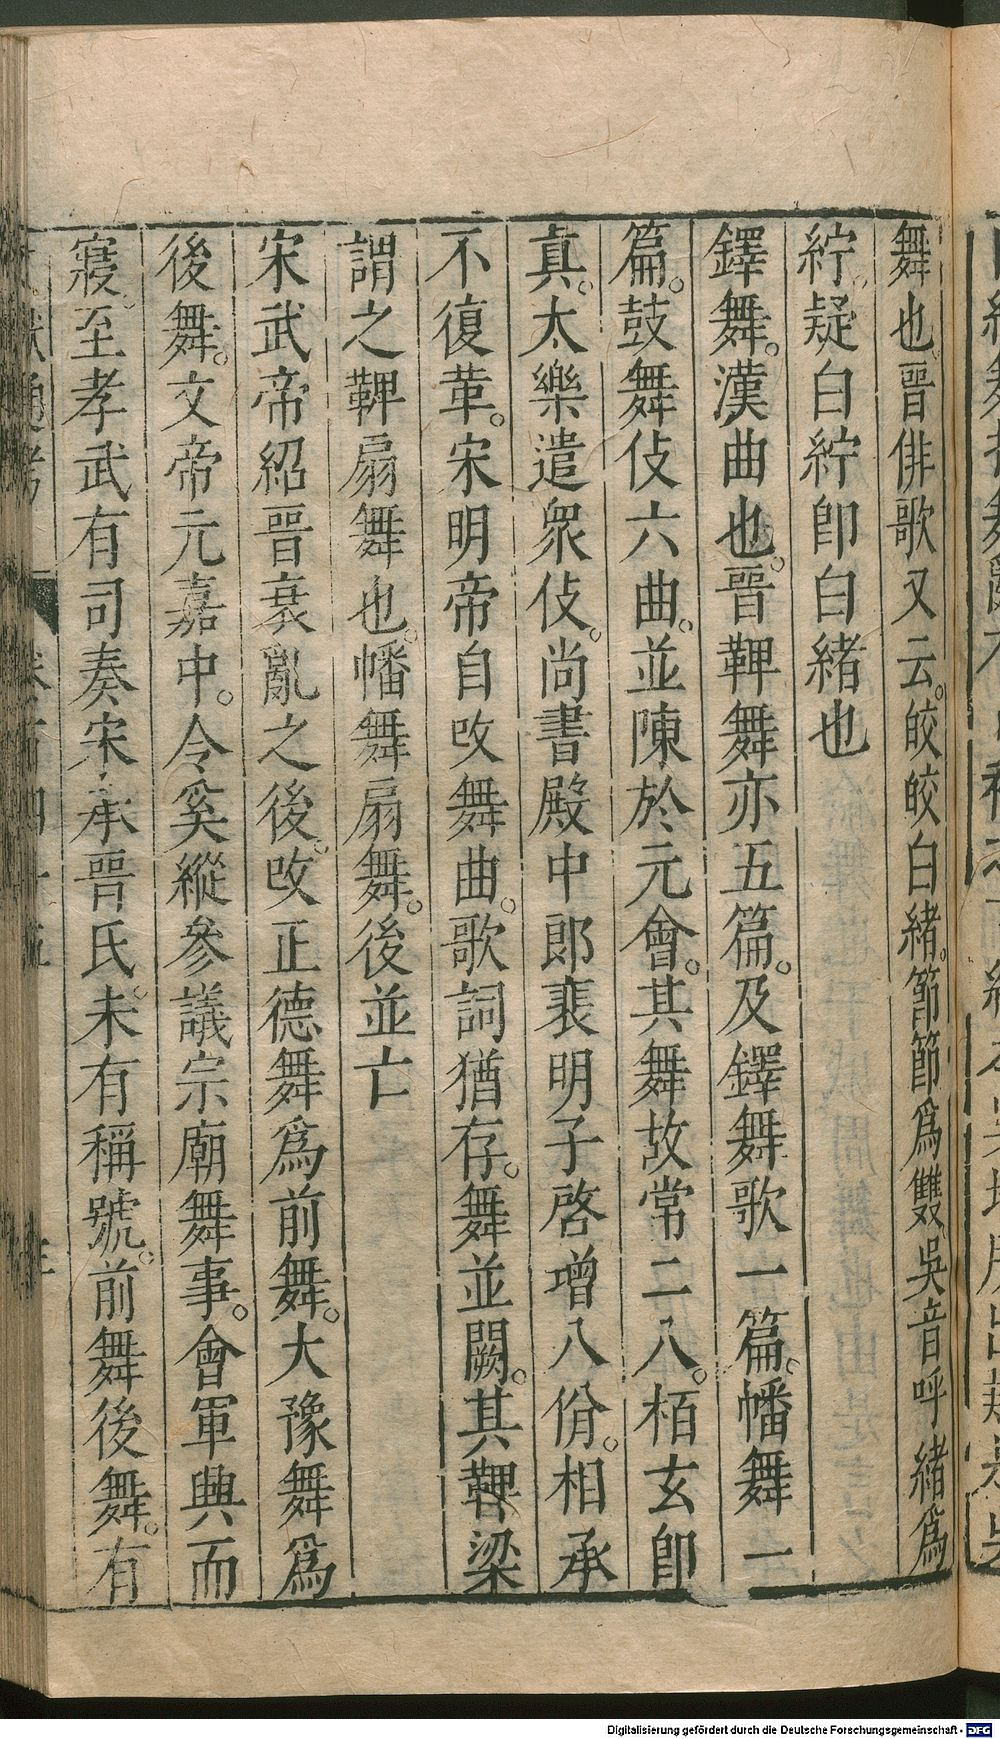 舞也晉俳歌又云。皎皎白緒。節節爲雙吳音呼緒爲
紵。疑白紵卽白緒也
鐸舞。漢曲也。晉鞞舞亦五篇。及鐸舞歌一篇。幡舞一
篇。鼓舞伎六曲。並陳於元會。其舞故常二八。栢玄卽
眞。太樂遣衆伎。尚書殿中郎裴明子啓增八佾。相承
不復革。宋明帝自攺舞曲。歌詞猶存。舞並闕。其鞞梁
謂之鞞扇舞也。幡舞扇舞。後並亡
宋武帝紹晉衰亂之後。攺正德舞爲前舞。大豫舞爲
後舞。文帝元嘉中。令奚縱參議宗廟舞事。會軍興而
寢。至孝武有司奏宋承晉氏。未有稱號。前舞後舞。有
Digitalisierung gefördert durch die Deutsche Forschungsgemeinschaft - DFG